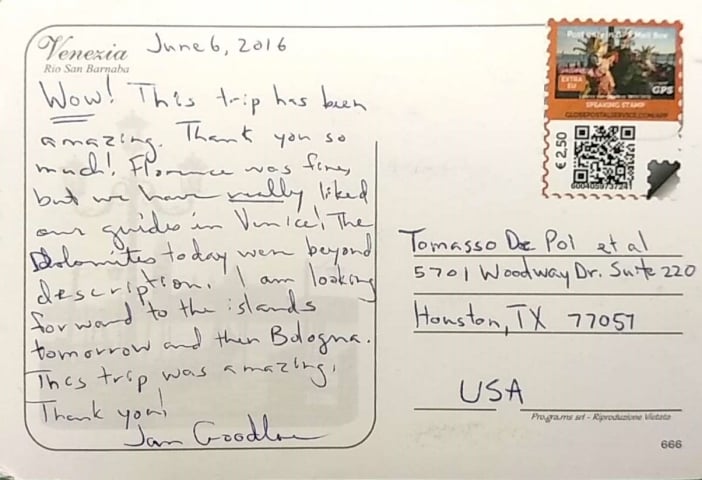 Venezia
Rio San Barnaba
June 6, 2016
Wow! This trip has been
amazing. Thank you so
much! Florence was fine,
but we have really liked
our guides in Venice! The
Dolomites today were beyond
description. I am looking
forward to the islands
tomorrow and then Bologna.
This trip was amazing.
Thank you!
Jan
EXTRA
EU
GPS
SPEAKING STAMP
GLOBEPOSTALSERVICE.COM/APP
€ 2,50
6004059737241
Tomasso De Pol et al
5701 Woodway Dr. Suite 220
Houston, TX 77057
USA
Pro.gra.ms srl - Riproduzione Vietata
666